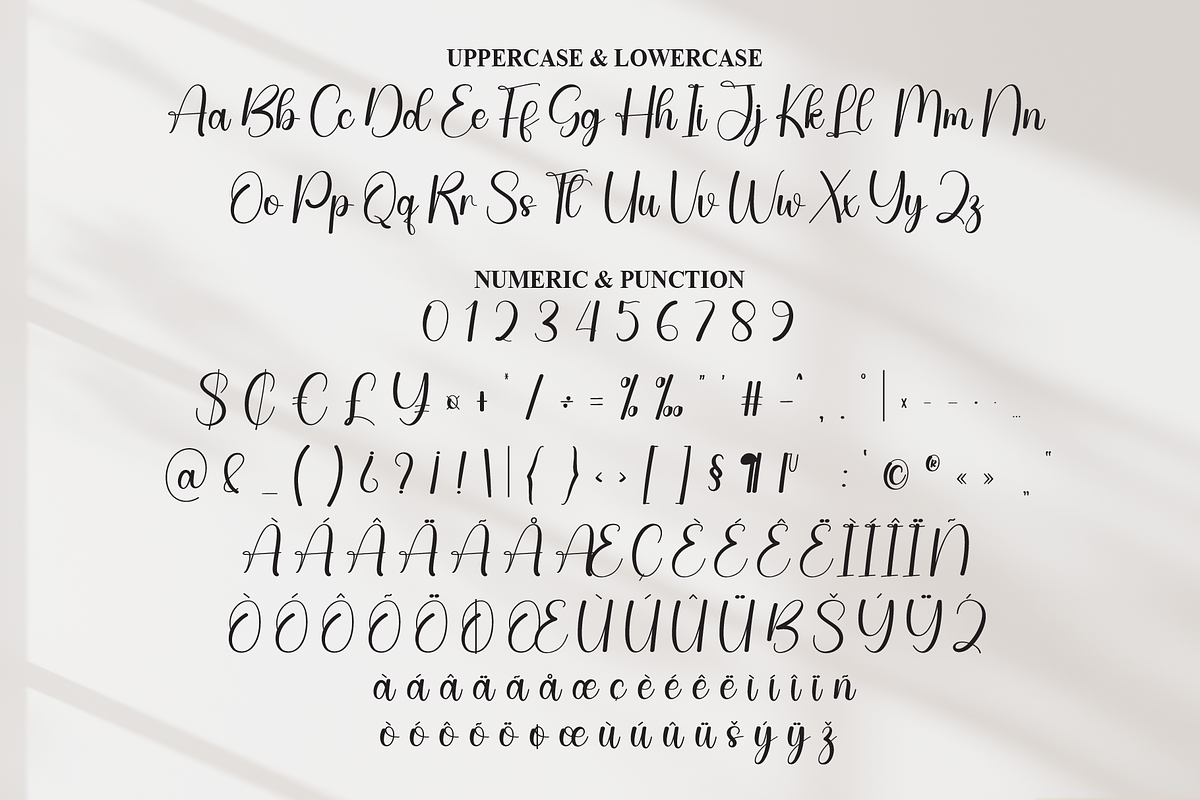 UPPERCASE & LOWERCASE
Aa Bb Cc Dd Ee Ff Gg Hh Ii Jj Kk Ll Mm Nn
Oo Pp Qq Rr Ss Tt Uu Vv Ww Xx Yy Zz
NUMERIC & PUNCTION
0 1 2 3 4 5 6 7 8 9
$ ₵ € £ ¥ ¤ + * / ÷ = % ‰ " ' # - ^ , . ° | × – — · · …
@ & _ ( ) ¿ ? ¡ ! \ | { } ‹ › [ ] § ¶ µ : ‘ © ® « » „ “
À Á Â Ä Ã Å Æ Ç È É Ê Ë Ì Í Î Ï Ñ
Ò Ó Ô Õ Ö Ø Œ Ù Ú Û Ü ẞ Š Ý Ÿ Ž
à á â ä ã å æ ç è é ê ë ì í î ï ñ
ò ó ô õ ö ø œ ù ú û ü š ý ÿ ž